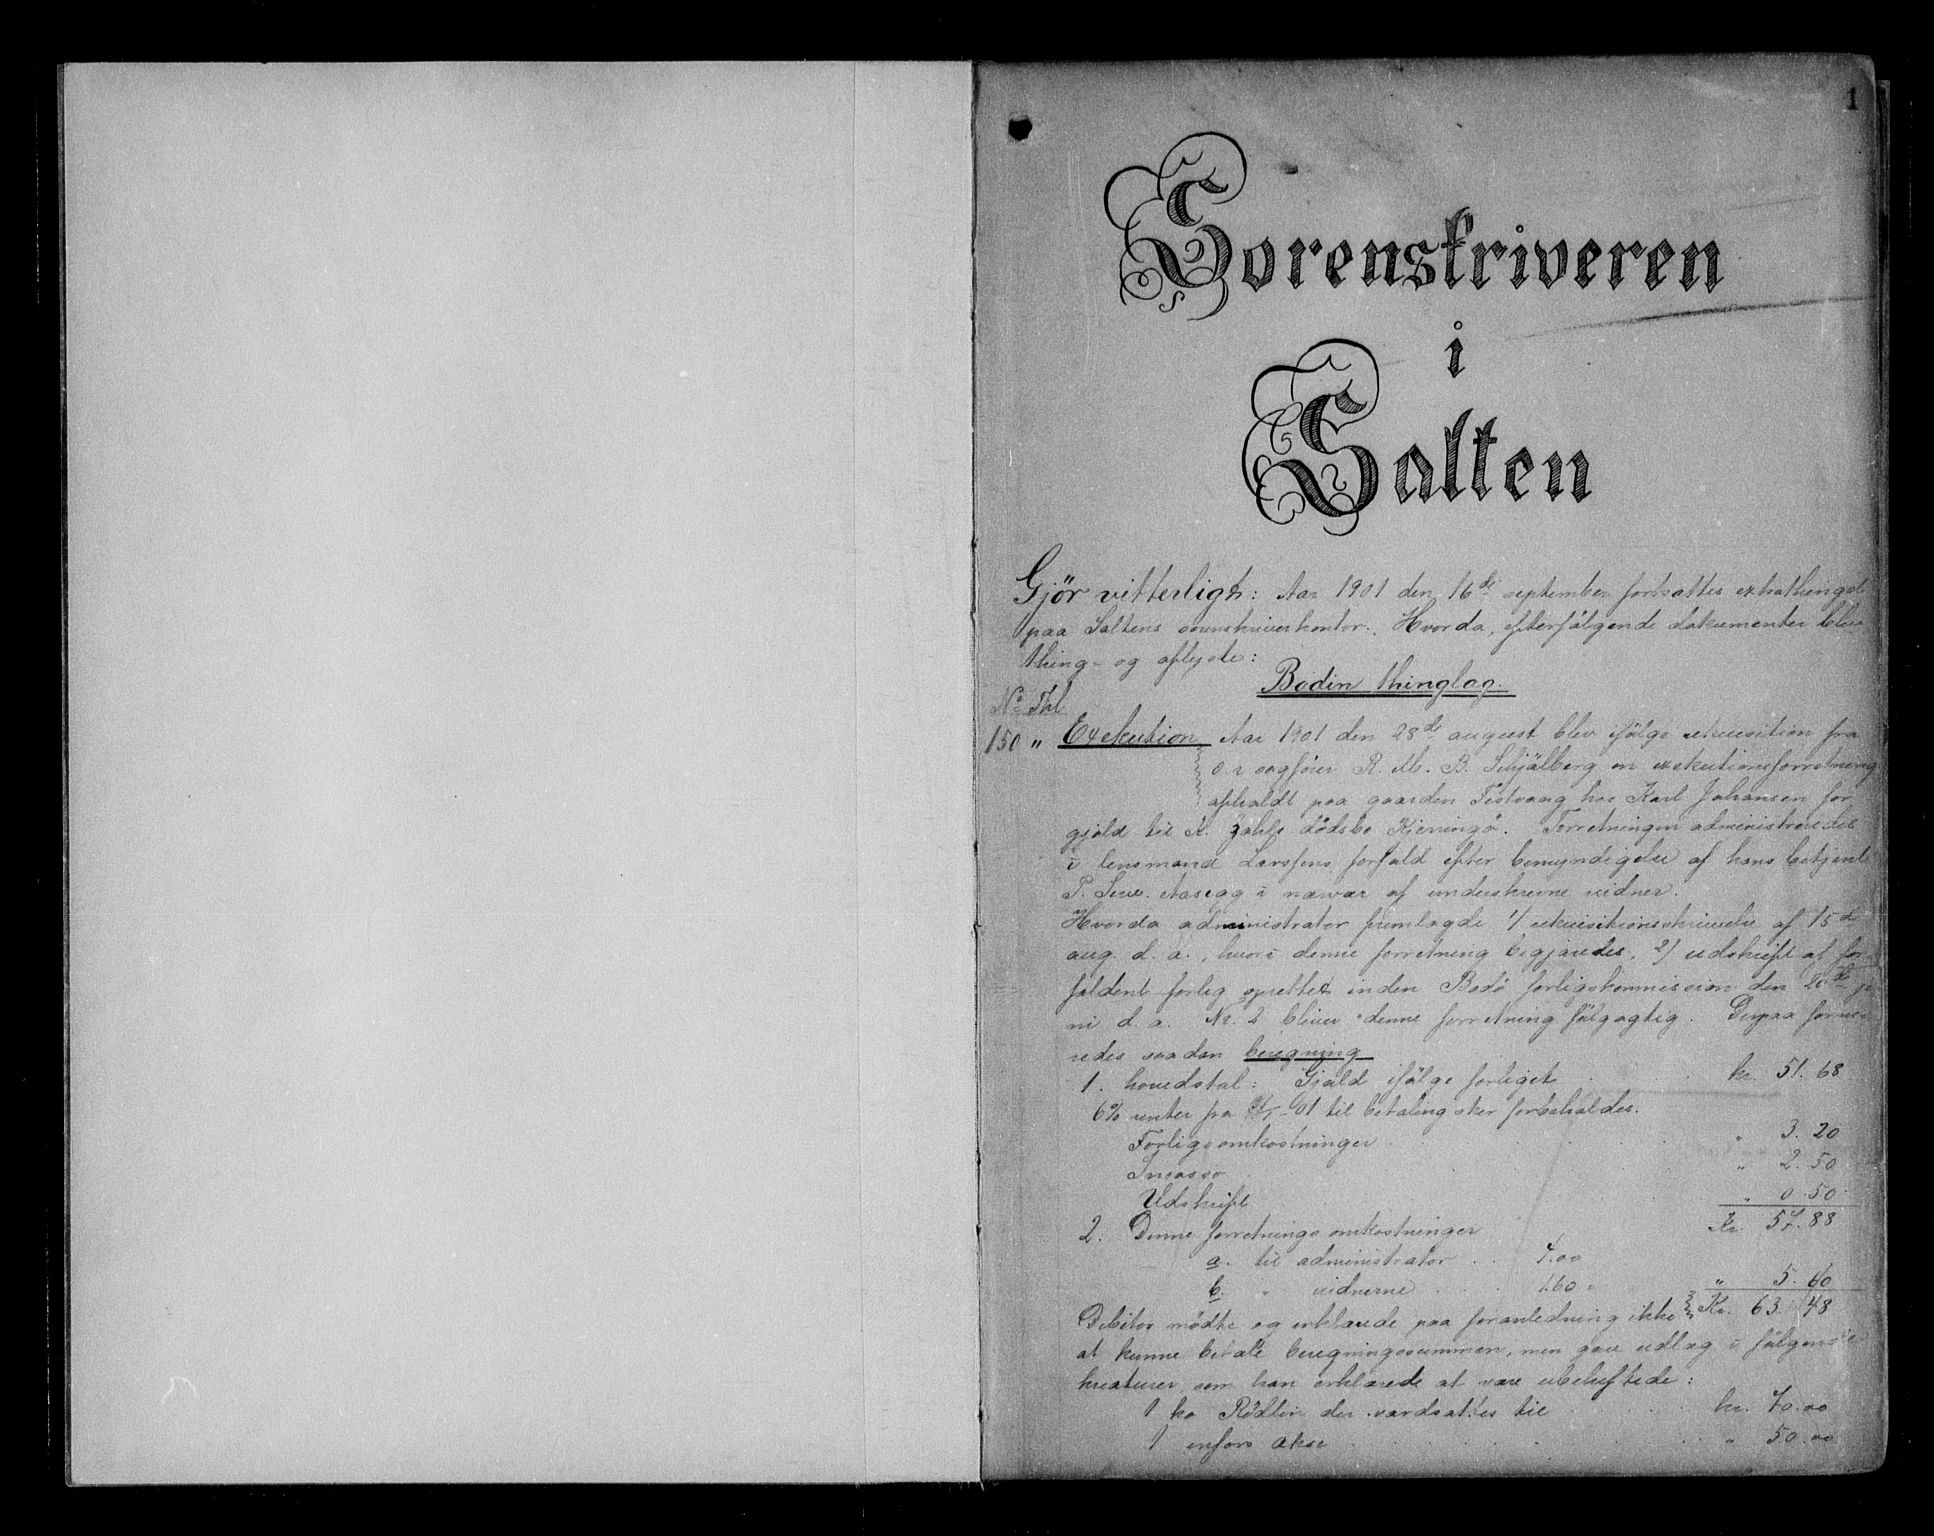 1
Sorenskriveren
i
Salten
Gjör vitterligt: Aar 1901 den 16de september fortsattes extrathinget
paa Saltens sorenskriverkontor. Hvorda, efterfölgende dokumenter blev
thing- og aflyste:
Bodin thinglag.
No Thl
150 " Exekution Aar 1901 den 28de august blev ifölge rekvisition fra
o.r. sagförer R. M. B. Schjölberg en exekutionsforretning
afholdt paa gaarden Festvaag hos Karl Johansen for
gjæld til K. Zahls dödsbo Kjerringö. Forretningen administreredes
i lensmand Larsens forfald efter bemyndigelse af hans betjent
P. Aasegg i nærvær af underskrevne vidner.
Hvorda administrator fremlagde 1/ rekvisitionsskrivelse af 15de
aug. d. a., hvori denne forretning begjæredes, 2/ udskrift af for-
faldent forlig oprettet inden Bodö forligskommission den 20de ju-
ni d. a. Nr. 2 bliver denne forretning fölgagtig. Derpaa formu-
redes saadan beregning
1. hovedstol: Gjæld ifölge forliget kr. 51.68
6% renter fra -01 til betaling sker forbeholdes.
Forligsomkostninger " 3.20
Incasso " 2.50
Udskrift " 0.50
Kr. 57.88
2. Denne forretnings omkostninger
a. til administrator 4.00
b. " vidnerne 1.60 " 5.60
Debitor mödte og erklærede paa foranledning ikke Kr. 63.48
at kunne betale beregningssummen, men gav udlæg i fölgende
kreaturer som han erklærede at være ubeheftede:
1 ko Rödlin der værdsattes til kr. 70.00
1 enfors okse " 50.00